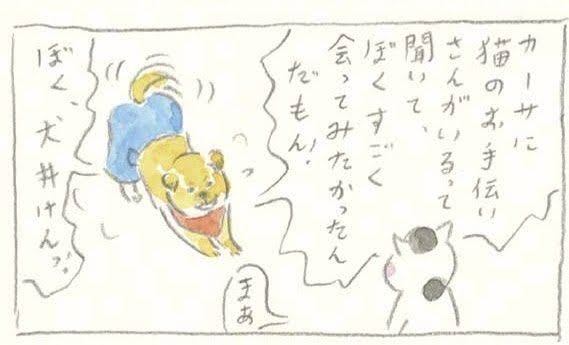 カーサに
猫のお手伝い
さんがいるって
聞いて、
ぼくすごく
会ってみたかったん
だもん!
ぼく、犬井けんっ!
まぁ